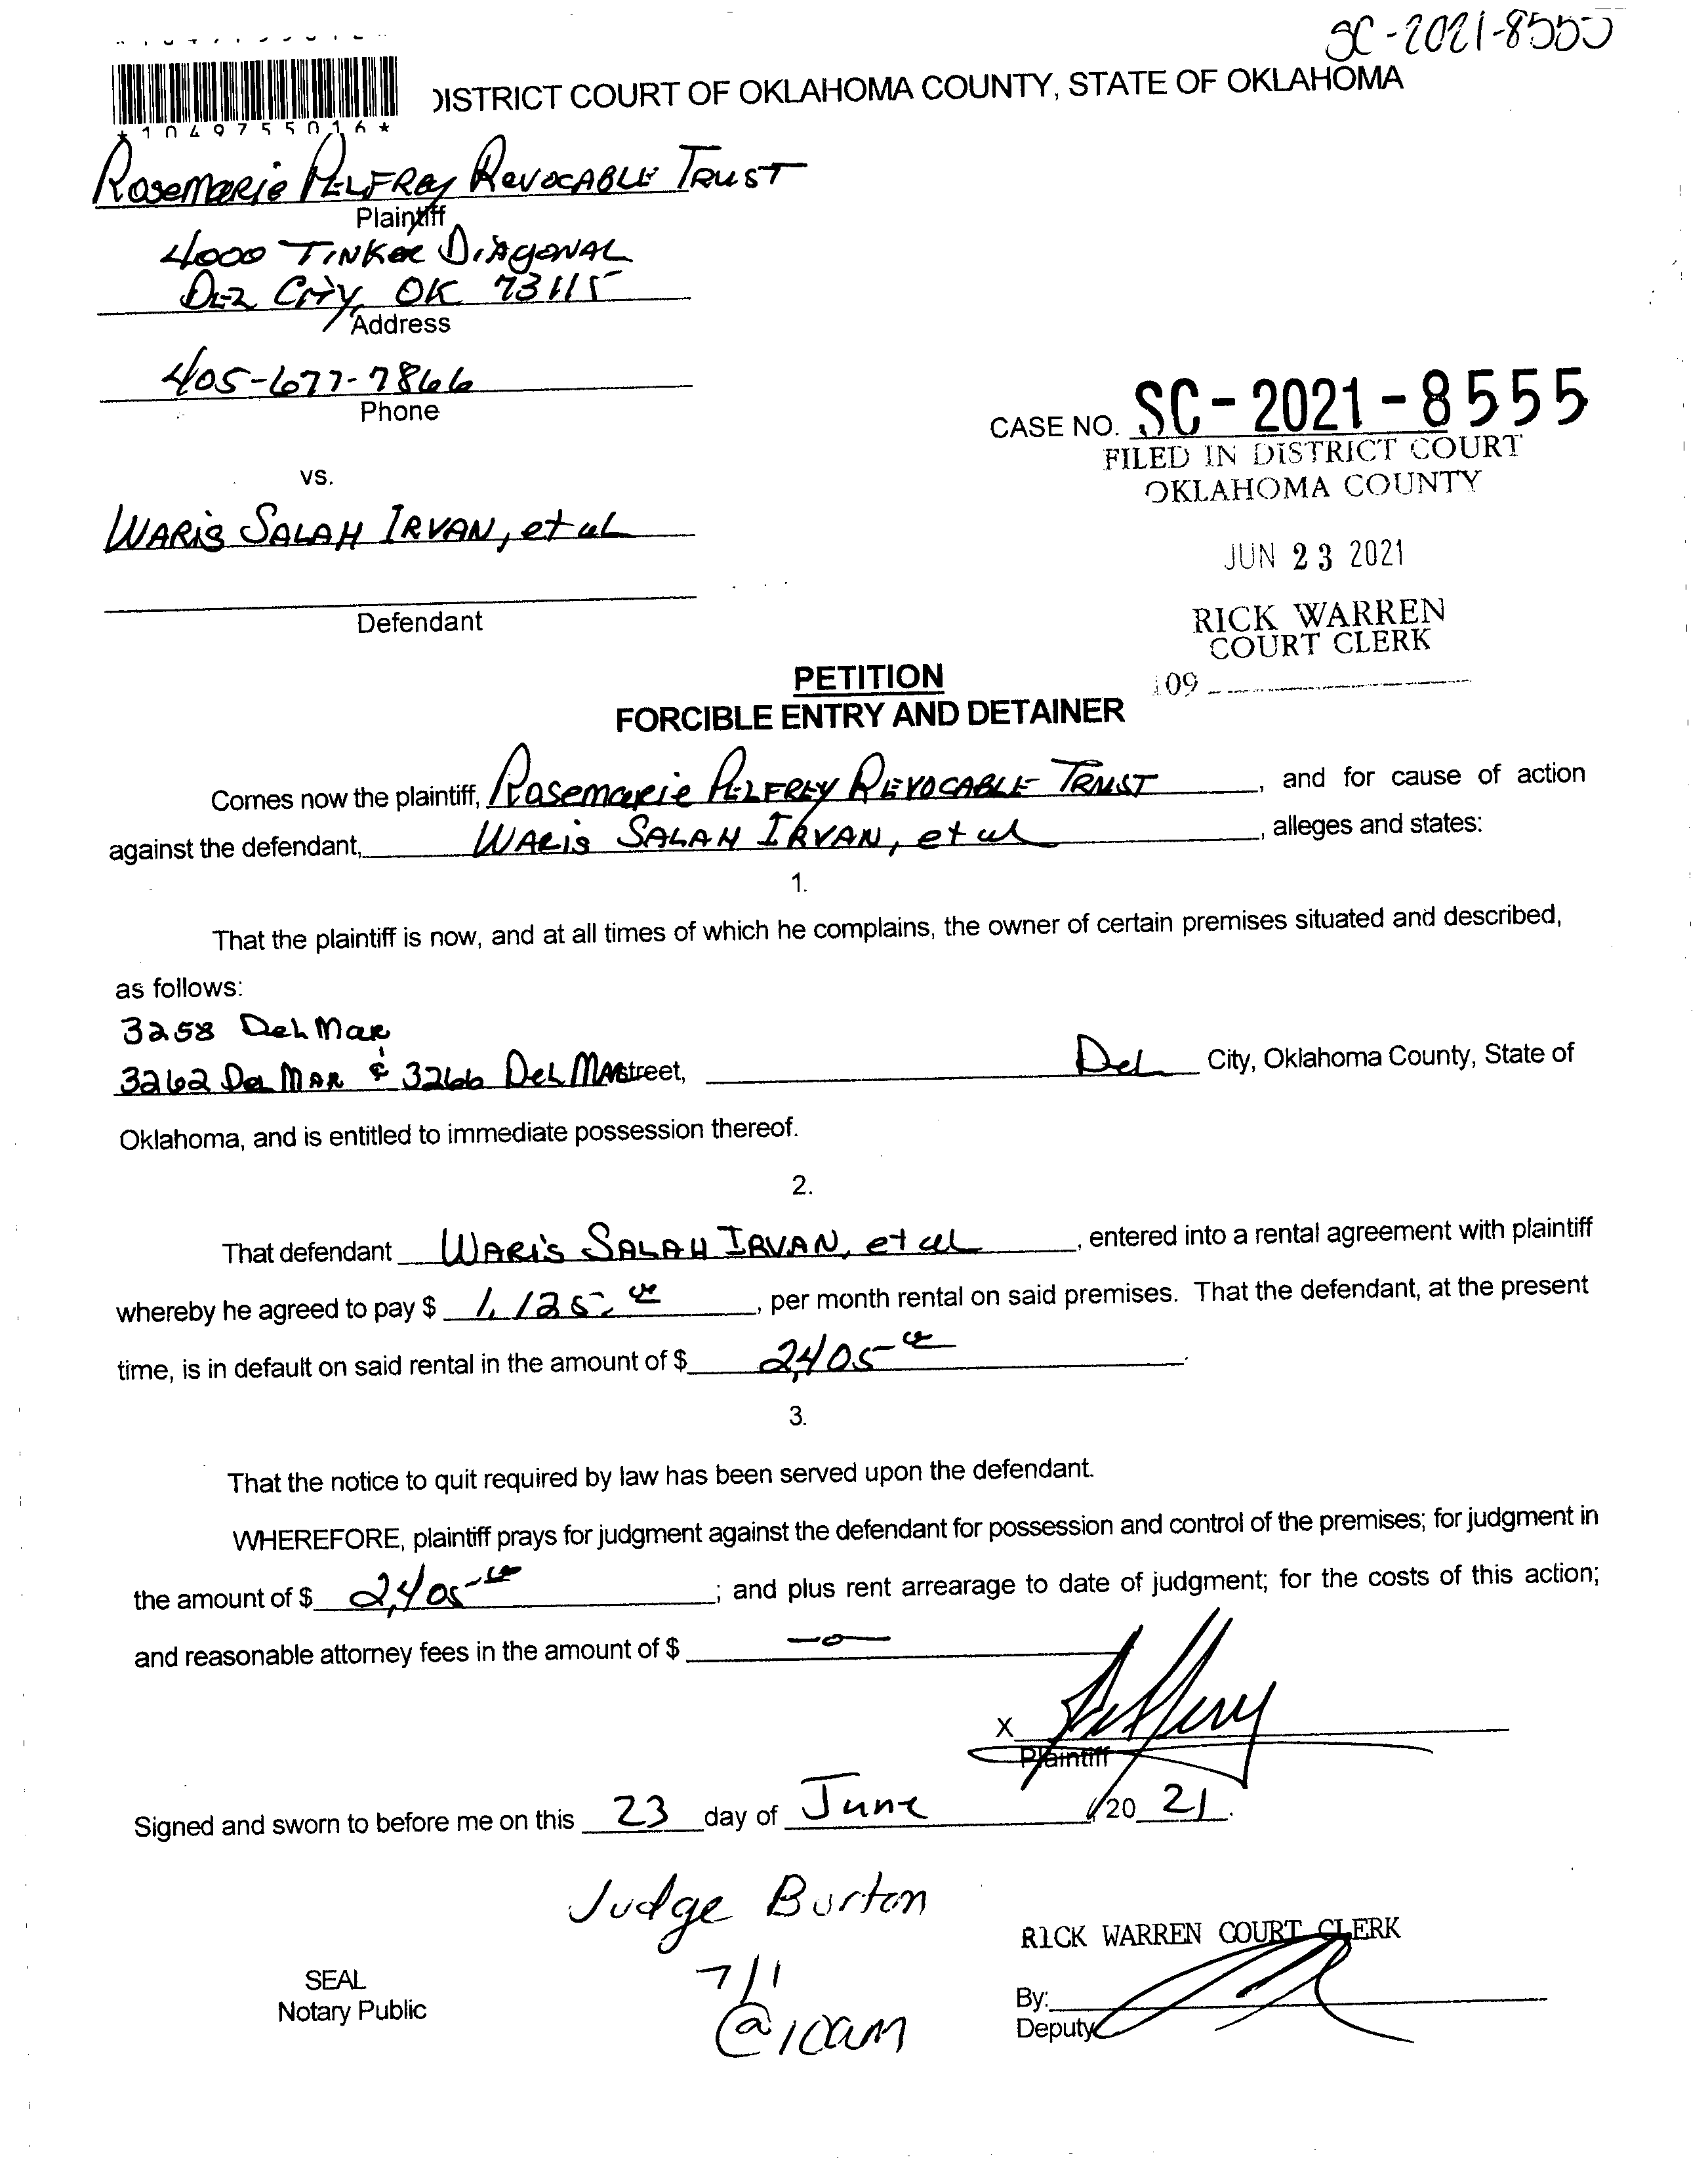 SC-2021-8555
DISTRICT COURT OF OKLAHOMA COUNTY, STATE OF OKLAHOMA
*1049755016*
Rosemarie Pelfrey Revocable Trust
Plaintiff
4000 Tinker Diagonal
Del City, OK 73115
Address
405-677-7866
Phone
CASE NO. SC-2021-8555
FILED IN DISTRICT COURT
OKLAHOMA COUNTY
vs.
Waris Salah Irvan, et al
JUN 23 2021
Defendant
RICK WARREN
COURT CLERK
109
PETITION
FORCIBLE ENTRY AND DETAINER
Comes now the plaintiff, Rosemarie Pelfrey Revocable Trust, and for cause of action
against the defendant, Waris Salah Irvan, et al, alleges and states:
1.
That the plaintiff is now, and at all times of which he complains, the owner of certain premises situated and described,
as follows:
3258 Del Mar
3262 Del Mar & 3266 Del Mar Street, Del City, Oklahoma County, State of
Oklahoma, and is entitled to immediate possession thereof.
2.
That defendant Waris Salah Irvan, et al, entered into a rental agreement with plaintiff
whereby he agreed to pay $ 1,125.00, per month rental on said premises. That the defendant, at the present
time, is in default on said rental in the amount of $ 2,405.00.
3.
That the notice to quit required by law has been served upon the defendant.
WHEREFORE, plaintiff prays for judgment against the defendant for possession and control of the premises; for judgment in
the amount of $ 2,405.00; and plus rent arrearage to date of judgment; for the costs of this action;
and reasonable attorney fees in the amount of $ -0-
X
Plaintiff
Signed and sworn to before me on this 23 day of June, 20 21.
Judge Burton
RICK WARREN COURT CLERK
SEAL
7/1
Notary Public
By:
@10am
Deputy